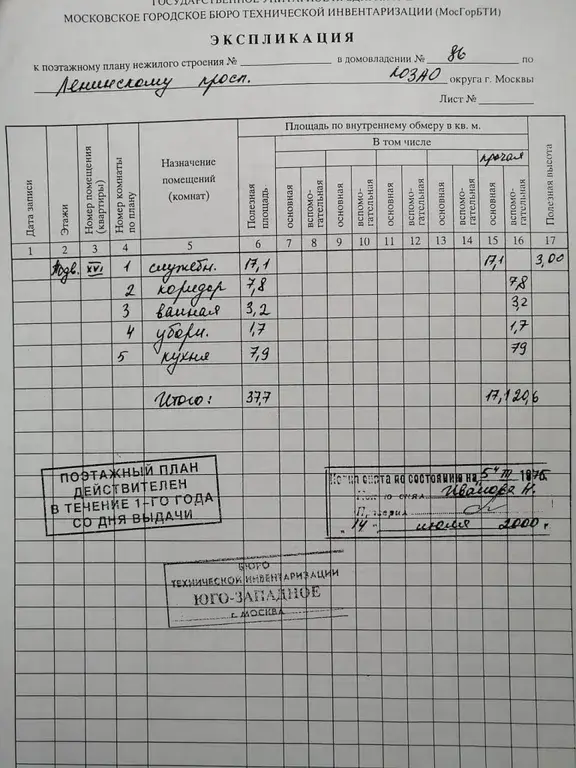 МОСКОВСКОЕ ГОРОДСКОЕ БЮРО ТЕХНИЧЕСКОЙ ИНВЕНТАРИЗАЦИИ (МосГорБТИ)
ЭКСПЛИКАЦИЯ
к поэтажному плану нежилого строения № в домовладении № 86 по
Ленинскому просп. ЮЗАО округа г. Москвы
Лист №
Дата записи
Этажи
Номер помещения (квартиры)
Номер комнаты по плану
Назначение помещений (комнат)
Площадь по внутреннему обмеру в кв. м.
Полезная площадь
В том числе
прочая
основная вспомо-гательная основная вспомо-гательная основная вспомо-гательная основная вспомо-гательная основная вспомо-гательная
Полезная высота
1 2 3 4 5 6 7 8 9 10 11 12 13 14 15 16 17
Подв. XVI 1 служебн. 17,1 17,1 3,00
2 коридор 7,8 7,8
3 ванная 3,2 3,2
4 уборн. 1,7 1,7
5 кухня 7,9 79
Итого: 37,7 17,1 20,6
ПОЭТАЖНЫЙ ПЛАН
ДЕЙСТВИТЕЛЕН
В ТЕЧЕНИЕ 1-ГО ГОДА
СО ДНЯ ВЫДАЧИ
по состоянию на
Иванова Н.
"14" июля 2000 г
БЮРО
ТЕХНИЧЕСКОЙ ИНВЕНТАРИЗАЦИИ
ЮГО-ЗАПАДНОЕ
г. МОСКВА